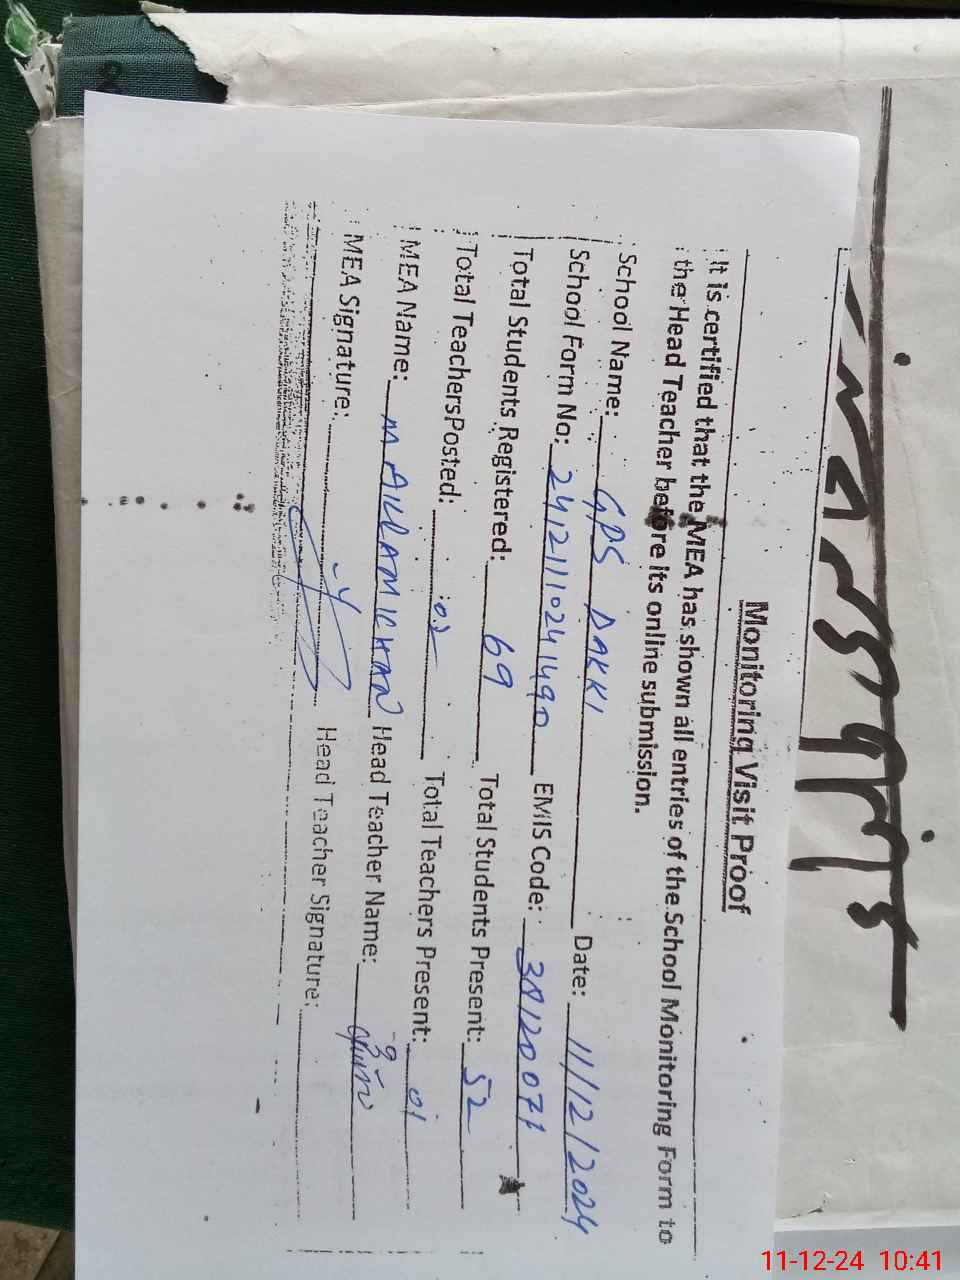 Monitoring Visit Proof
It is certified that the MEA has shown all entries of the School Monitoring Form to
the Head Teacher before its online submission.
School Name: GPS DAKKI Date: 11/12/2024
School Form No: 24121110241490 EMIS Code: 38120071
Total Students Registered: 69 Total Students Present: 52
Total Teachers Posted: 02 Total Teachers Present: 01
MEA Name: Head Teacher Name:
MEA Signature: Head Teacher Signature:
11-12-24 10:41